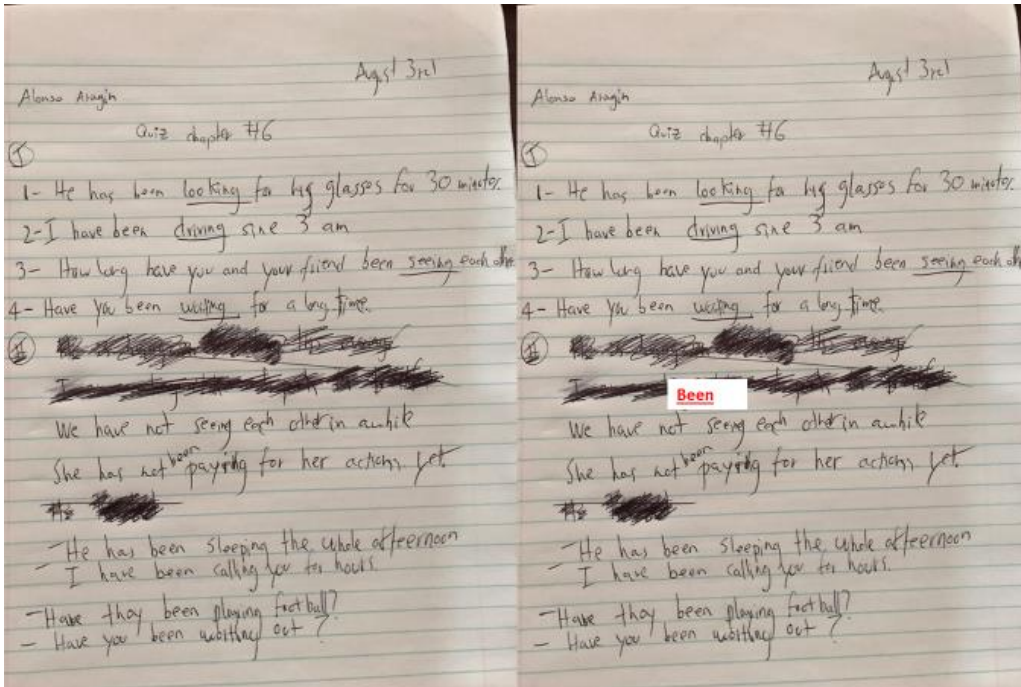 August 3rd
Alonso Aragón
Quiz chapter #6
I
1- He has been looking for his glasses for 30 minutes.
2- I have been driving sine 3 am
3- How long have you and your friend been seeing each othe
4- Have you been waiting for a long time.
II
We have not seeing each other in awhile
She has not been paying for her actions yet.
- He has been sleeping the whole afteernoon
- I have been calling you for hours.
- Have they been playing football?
- Have you been working out?
August 3rd
Alonso Aragón
Quiz chapter #6
I
1- He has been looking for his glasses for 30 minutes.
2- I have been driving sine 3 am
3- How long have you and your friend been seeing each oth
4- Have you been waiting for a long time.
II
Been
We have not seeing each other in awhile
She has not been paying for her actions yet.
- He has been sleeping the whole afteernoon
- I have been calling you for hours.
- Have they been playing football?
- Have you been working out?